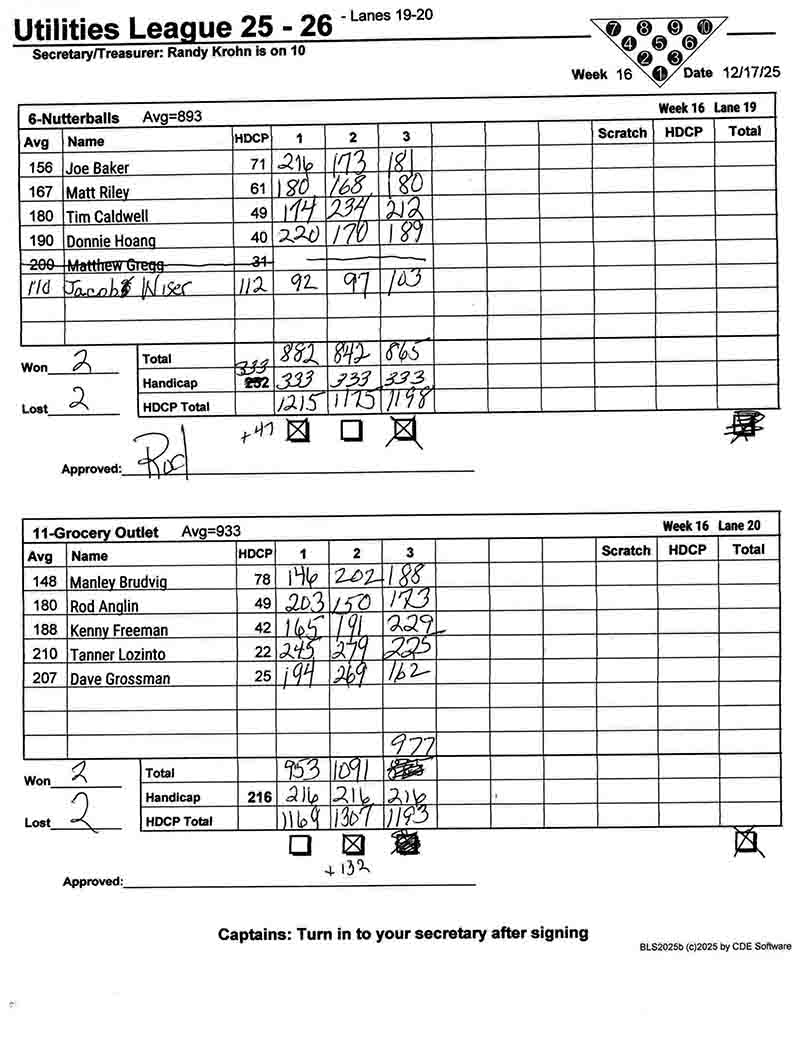 Utilities League 25 - 26 - Lanes 19-20
Secretary/Treasurer: Randy Krohn is on 10
7 8 9 10
4 5 6
2 3
1
Week 16 Date 12/17/25
6-Nutterballs Avg=893 Week 16 Lane 19
Avg Name HDCP 1 2 3 Scratch HDCP Total
156 Joe Baker 71 216 173 181
167 Matt Riley 61 180 168 180
180 Tim Caldwell 49 174 234 212
190 Donnie Hoang 40 220 170 189
200 Matthew Gregg 31
r/d Jacob Wiser 112 92 97 103
Won 2 Total 882 842 865
333
Handicap 252 333 333 333
Lost 2 HDCP Total 1215 1175 1198
+47
Approved: Rod
11-Grocery Outlet Avg=933 Week 16 Lane 20
Avg Name HDCP 1 2 3 Scratch HDCP Total
148 Manley Brudvig 78 146 202 188
180 Rod Anglin 49 203 150 173
188 Kenny Freeman 42 165 191 229
210 Tanner Lozinto 22 245 279 225
207 Dave Grossman 25 194 269 162
977
Won 2 Total 953 1091
Handicap 216 216 216 216
Lost 2 HDCP Total 1169 1307 1193
+132
Approved:
Captains: Turn in to your secretary after signing
BLS2025b (c)2025 by CDE Software